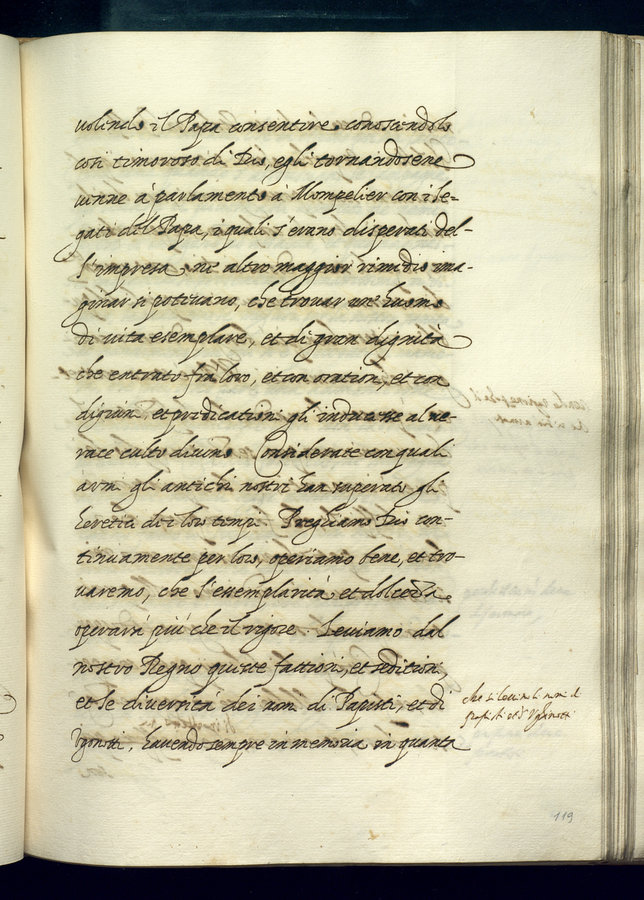 volendo il Papa consentire, conoscendolo
così timoroso di Dio, egli tornandosene
venne à parlamento à Mompelier con i le-
gati del Papa, i quali s'erano disperati del-
l'impresa, ne altro maggior rimedio ima-
ginar si potevano, che trovar une huomo
di vita esemplare, et di gran dignità
che entrato fra loro, et con orationi, et con
digiuni et predicationi gli inducesse al ve-
race culto divino. Considerate con quali
armi gli antichi nostri han superato gli
heretici dei loro tempi. Preghiamo Dio con-
tinuamente per loro, operiamo bene, et tro-
varemo, che l'esemplarità et dolcezza
operarà più che il rigore. Leviamo dal
nostro Regno queste fattioni, et seditioni,
et le diversità dei nomi di Papisti, et di
Vgonotti, havendo sempre in memoria in quanta
che si levino li nomi di
Papisti et d'Vghonotti
119